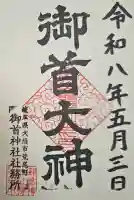 令和八年五月三日
御首大神
岐阜県大垣市荒尾町
御首神社社務所